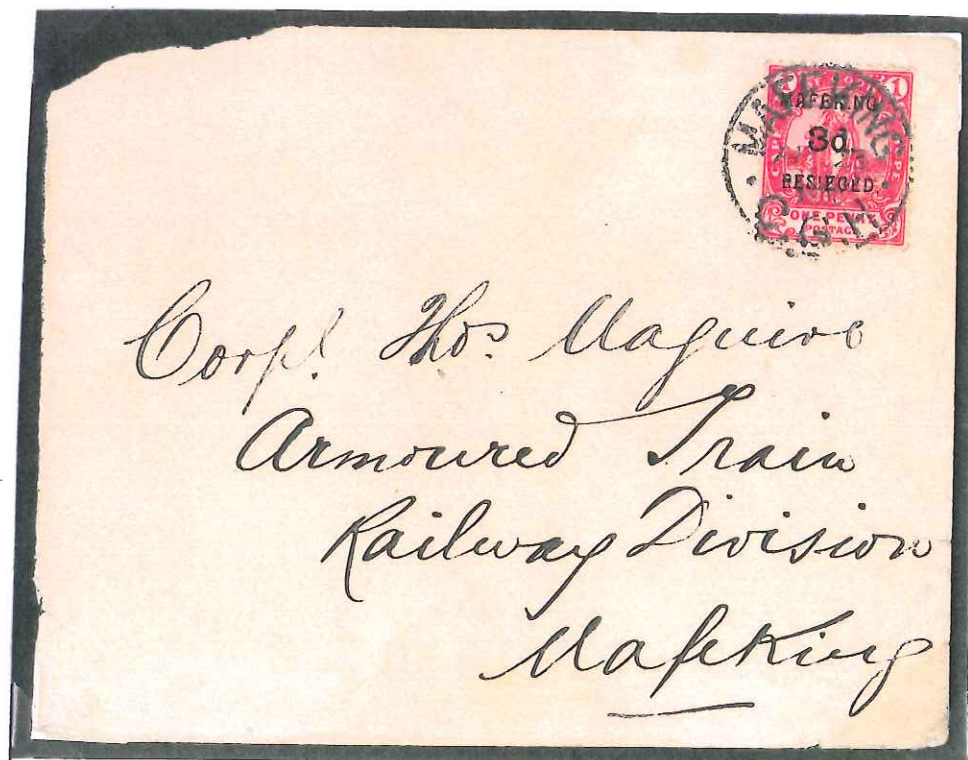 1 1
MAFEKING
MAFEKING
3d.
BESIEGED
ONE PENNY
POSTAGE
C.G.H
Corpl. Thos. Maguire
Armoured Train
Railway Division
Mafeking